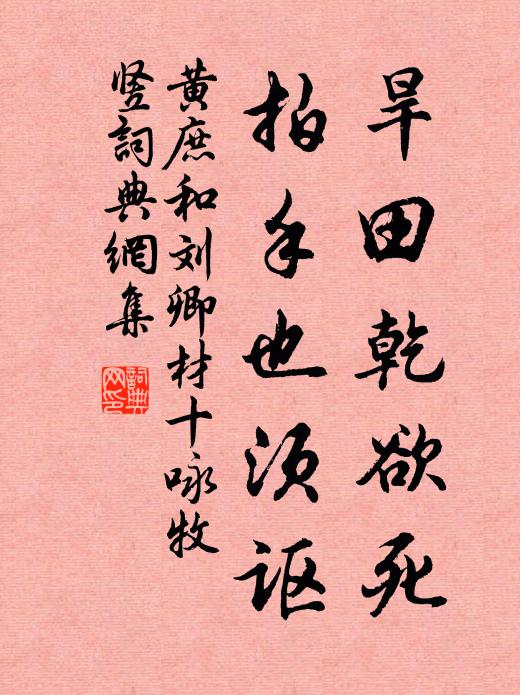 旱田乾欲死
拍手也须讴
黄庶和刘卿材十咏牧
竖詞典網集
詞典
网印